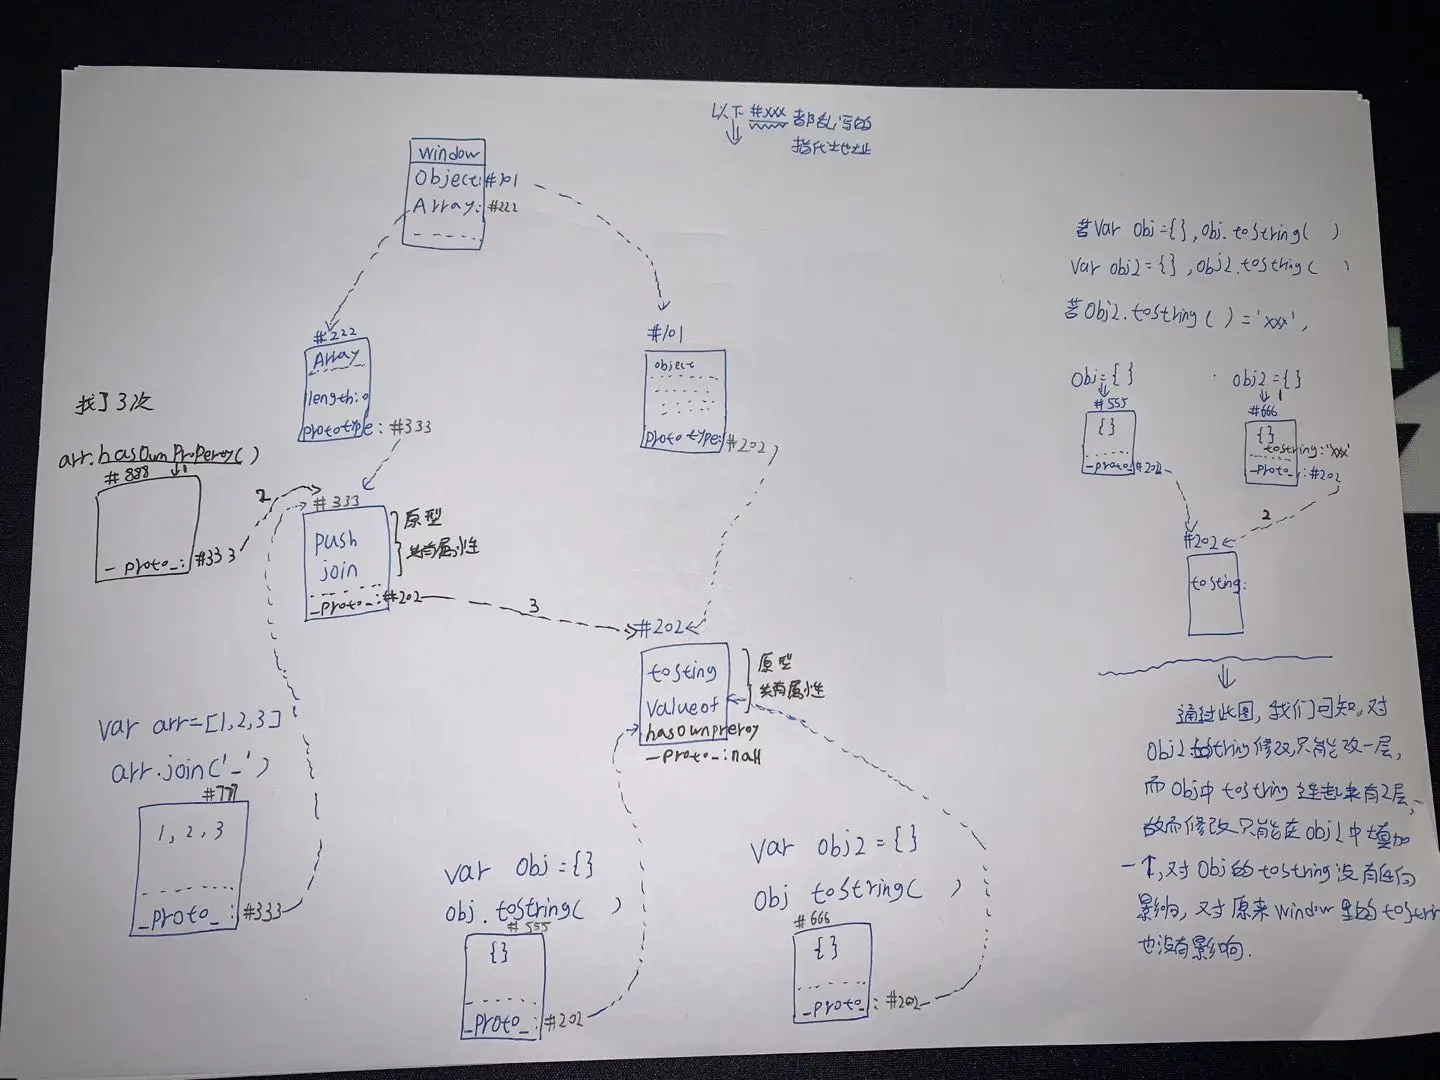 以下#xxx都乱写的
指代地址
window
Object:#101
Array:#222
#222
Array
length:0
prototype:#333
#101
object
prototype:#202
找了3次
arr.hasOwnProperoy()
1
#888
_proto_:#333
2
#333
push
join
_proto_:#202
原型
共有属性
3
#202
tosting
valueof
hasownpreroy
_proto_:null
原型
共有属性
var arr=[1,2,3]
arr.join('_')
#777
1,2,3
_proto_:#333
var obj={}
obj.tostring( )
#555
{}
_proto_:#202
var obj2={}
obj tostring( )
#666
{}
_proto_:#202
若var obj={},obj.tostring( )
var obj2={},obj2.tostring( )
若obj2.tostring()='xxx',
obj={}
#555
{}
_proto_#202
obj2={}
1
#666
{}
tostring:'xxx'
_proto_:#202
2
#202
tosting:
通过此图,我们可知,对
obj2 tostring修改,只能改一层,
而obj中tostring连起来有2层,
故而修改只能在obj2中增加
一个,对obj的tostring没有任何
影响,对原来window里的tostrin
也没有影响.